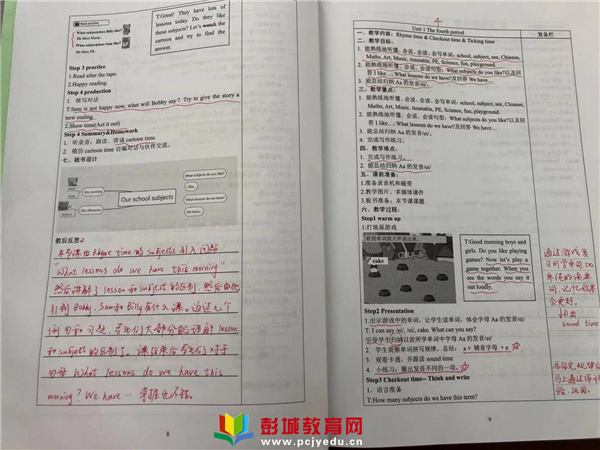 Read and think
What subject does Billy like?
He likes Music.
What subject does Sam like?
He likes PE.
T:Great! They have lots of
lessons today. Do they like
these subjects? Let's watch the
cartoon and try to find the
answer.
Step 3 practice
1.Read after the tape.
2.Happy reading.
Step 4 production
1. 续写对话
T:Sam is not happy now, what will Bobby say? Try to give the story a
new ending.
2.Show time(Act it out)
Step 4 Summary&Homework
1. 听录音，跟读，背诵 cartoon time.
2. 模仿 cartoon time 自编对话与伙伴交流。
七、板书设计
this morning
this afternoon
Our school subjects
What subjects do you like?
I like...
What lessons do we have?
We have...
教后反思：
本节课由 Rhyme time 的 subjects 引入问题
"What lessons do we have this morning"
然后讲解了 lesson 和 subject 的区别，然后由此
引到 Bobby, Sam 和 Billy 有什么课。通过几个
例句和习题，学生们大部分能理解 lesson
和 subject 的区别了。课结束后学生们对于
句型 What lessons do we have this
morning? We have… 掌握也不错
8
4
Unit 1 The fourth period
复备栏
一、教学内容: Rhyme time & Checkout time & Ticking time
二、教学目标:
1. 能熟练地听懂、会说、会读、会写单词: school, subject, see, Chinese,
Maths, Art, Music, timetable, PE, Science, fun, playground.
2. 能熟练地听懂、会说、会读句型: What subjects do you like?以及回
答 I like…; What lessons do we have?及回答 We have…
3. 能总结归纳 Aa 的发音/ei/
三、教学重点:
1. 能熟练地听懂、会说、会读、会写单词: school, subject, see, Chinese,
Maths, Art, Music, timetable, PE, Science, fun, playground.
2. 能熟练地听懂、会说、会读句型: What subjects do you like?以及回
答 I like…; What lessons do we have?及回答 We have…
3. 能总结归纳 Aa 的发音/ei/.
4. 完成写作练习。
四、教学难点:
1. 完成写作练习。
2. 能总结归纳 Aa 的发音/ei/
五、课前准备:
1.准备录音机和磁带
2.教学图片、多媒体课件
3.板书准备: 本节课课题
六、教学过程:
Step1 warm up
1.打地鼠游戏
cake
T:Good morning boys and
girls. Do you like playing
games? Now let's play a
game together. When you
see the words you say it
out loudly.
通过游戏复
会更好。
引出
sound time
Step2 Presentation
1.出示游戏中的单词，让学生读单词，体会字母 Aa 的发音/ei/
T: I can say /ei/, /ei/, cake. What can you say?
引导学生归纳以前所学单词中字母 Aa 的发音/ei/
2. 学生观察单词拼写规律。总结: a+ 辅音字母 +e
3. 观看卡通，并跟读 sound time
4. 小练习: 圈出发音不同的一项。
Step3 Checkout time– Think and write
1. 语言准备
T:How many subjects do we have this term?
9
彭城教育网
www.pcjyedu.cn